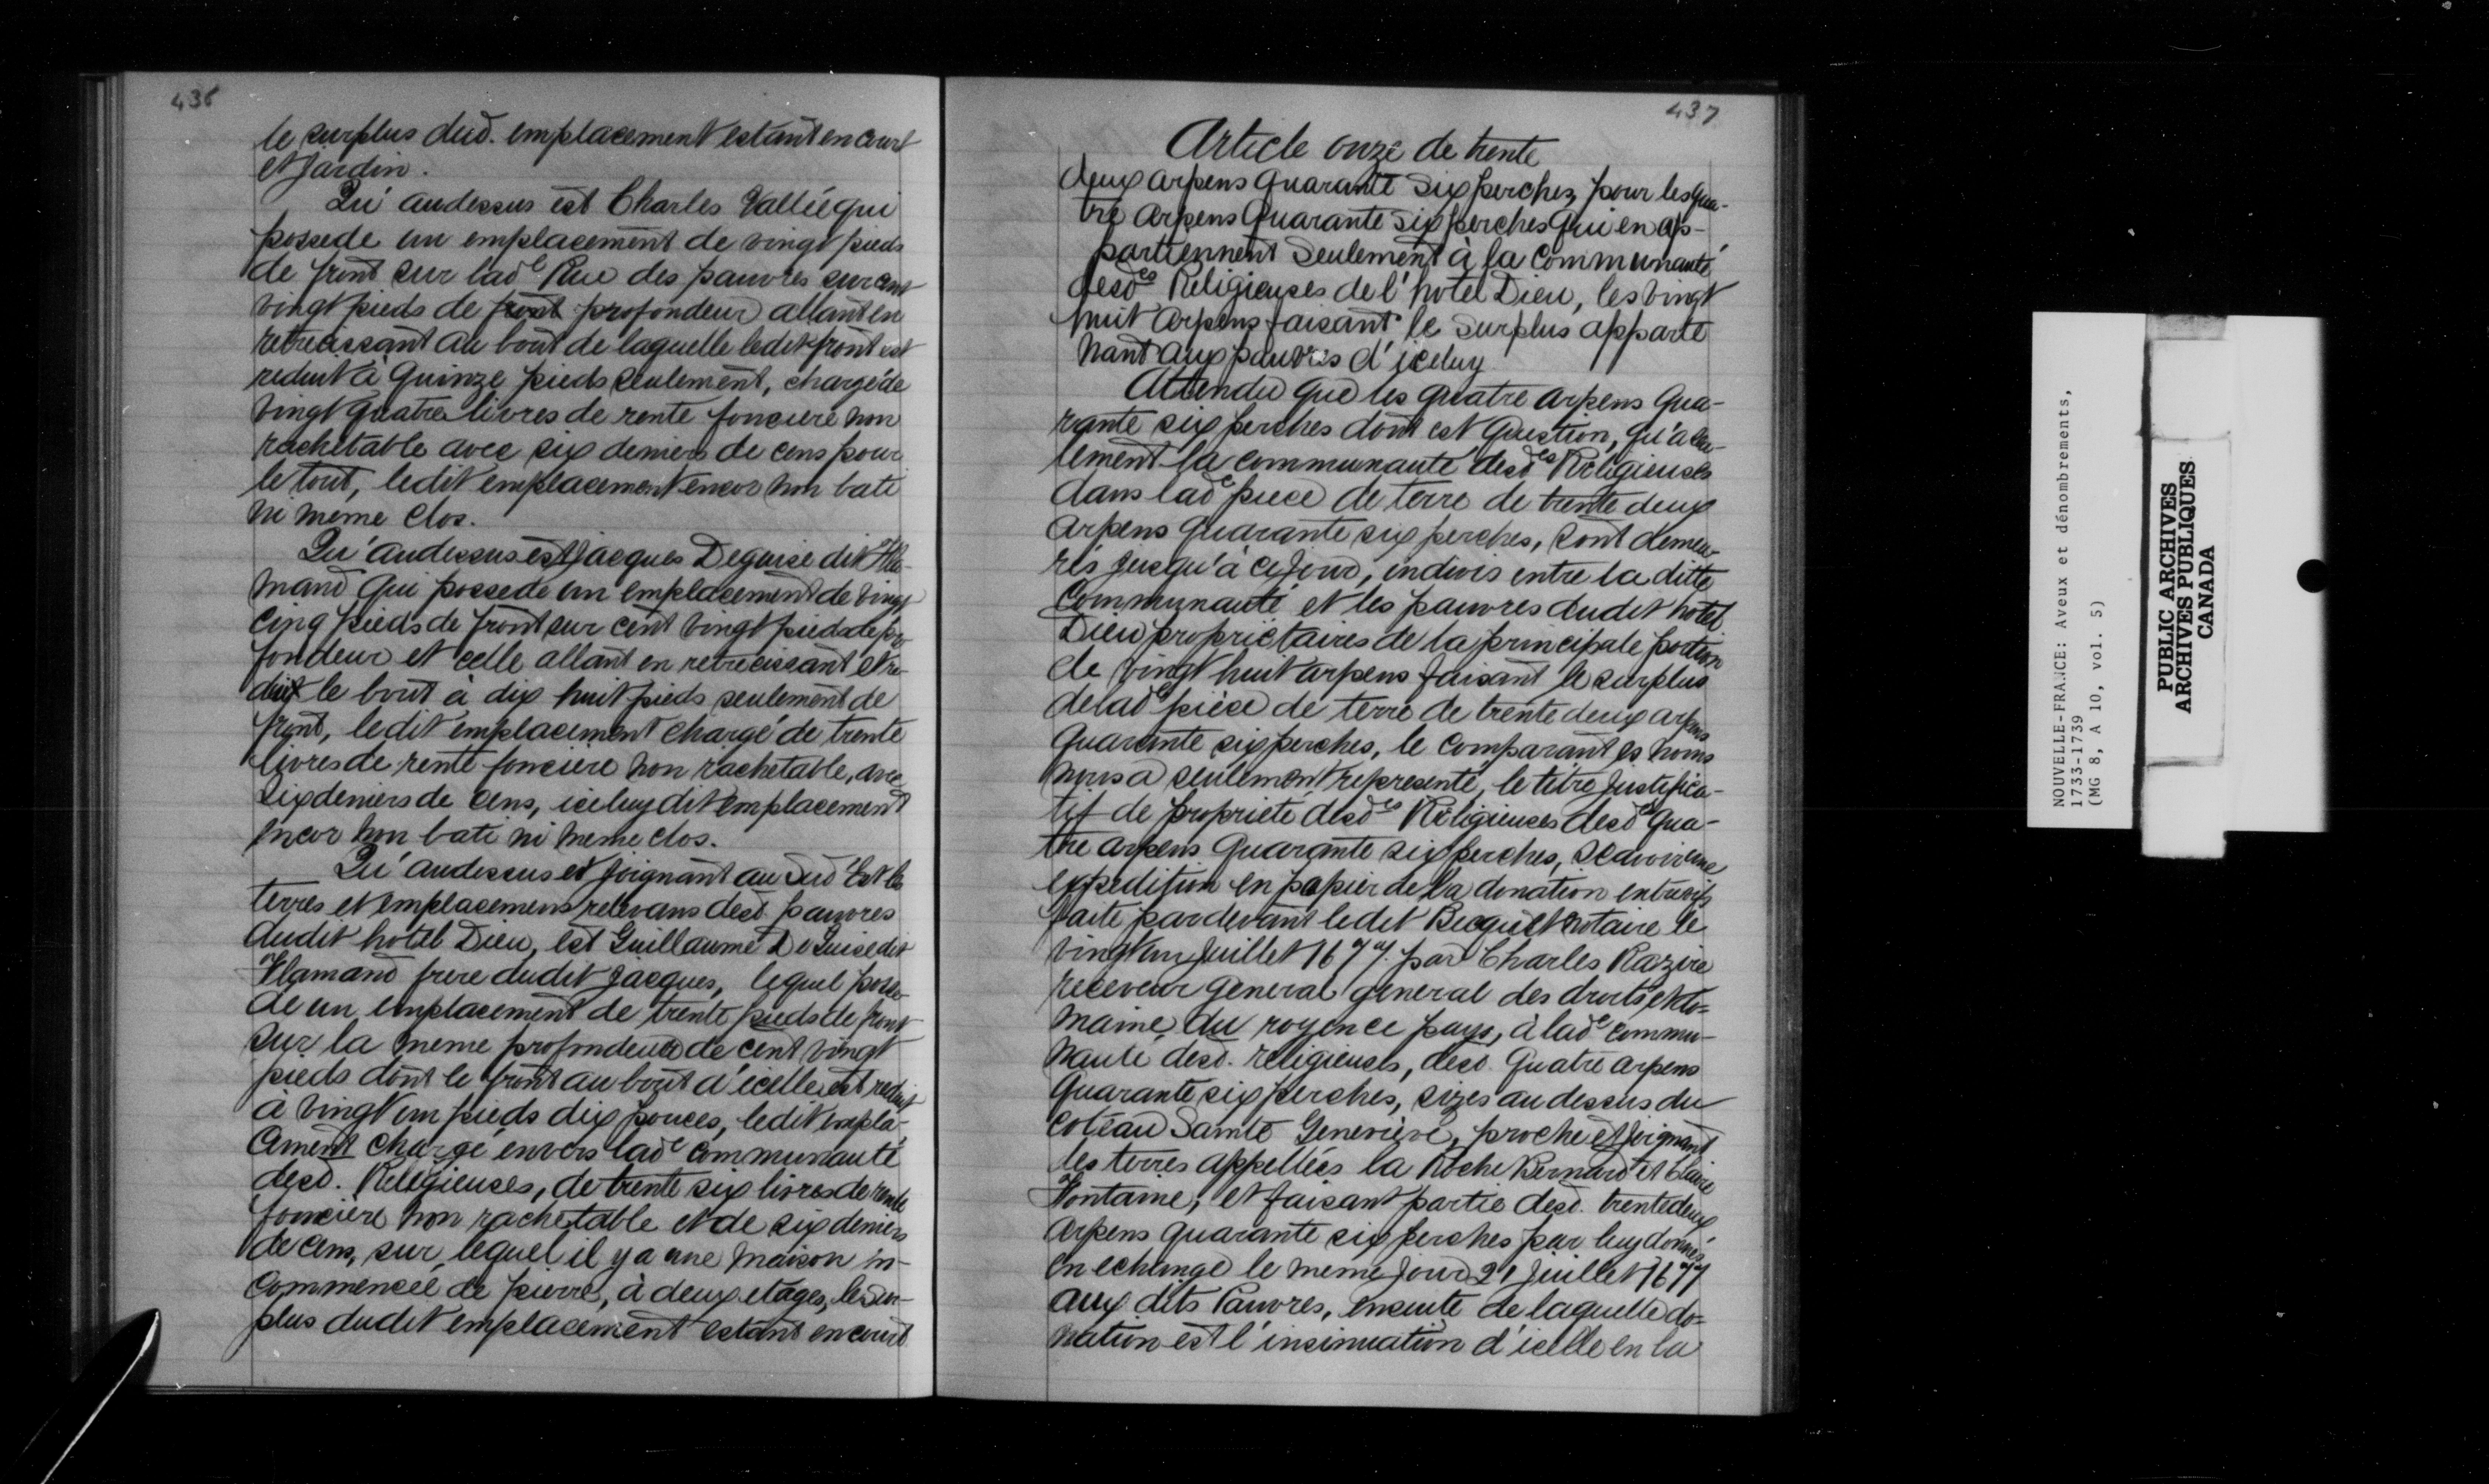 436
le surplus dud. emplacement estant en court
et Jardin.
Qu'audessus est Charles Vallée qui
possede un emplacement de vingt pieds
de front sur lad.e Rue des pauvres sur cent
vingt pieds de front profondeur allant en
retrecissant au bout de laquelle ledit front est
reduit à quinze pieds seulement, chargé de
vingt quatre livres de rente fonciere non
rachetable avec six deniers de cens pour
le tout, ledit emplacement encor non bati
ni meme clos.
Qu'audessus est Jacques Deguise dit Fla-
mand qui possede un emplacement de vingt
cinq pieds de front sur cent vingt pieds de pro
fondeur et celle allant en retrecissant et re
duit le bout à dix huit pieds seulement de
front, ledit emplacement chargé de trente
livres de rente fonciere non rachetable, avec
six deniers de cens, iceluy dit emplacement
encor non bati ni meme clos.
Qu'audessus et joignant au Sud Est les
terres et emplacemens relevans desd. pauvres
dudit hotel Dieu, est Guillaume DeGuise dit
Flamand frere dudit Jacques, lequel posse-
de un emplacement de trente pieds de front
sur la meme profondeur de cent vingt
pieds dont le front au bout d'icelle est reduit
à vingt un pieds dix pouces, ledit empla-
cement chargé envers lad.e Communauté
desd. Religieuses, de trente six livres de rente
fonciere non rachetable et de six deniers
de cens, sur lequel il y a une maison in-
commencée de pierre, à deux etages, le sur-
plus dudit emplacement estant en court
437
Article onze de trente
deux arpens quarante six perches, pour les qua-
tre arpens quarante six perches qui en ap-
partiennent seulement à la Communauté
desd.es Religieuses de l'hotel Dieu, les vingt
huit arpens faisant le surplus apparte
nant aux pauvres d'iceluy
Attendu que les quatre arpens qua-
rante six perches dont est question, qu'a seu-
lement la communauté desd.es Religieuses
dans lad.e piece de terre de trente deux
arpens quarante six perches, sont demeu-
rés jusqu'à ce jour, indivis entre la ditte
Communauté et les pauvres dudit hotel
Dieu proprietaires de la principale portion
de vingt huit arpens faisant le surplus
de lad.e pièce de terre de trente deux arpens
quarante six perches, le comparant es noms
nous a seulement representé, le titre justifica-
tif de proprieté desd.es Religieuses desd.e qua-
tre arpens quarante six perches, scavoir une
expedition en papier de la donation entrevifs
faite pardevant ledit Becquet notaire le
vingt un Juillet 1677. par Charles Bazire
receveur general general des droits et do=
maine du roy en ce pays, à lad.e commu-
nauté desd. religieuses, desd. quatre arpens
quarante six perches, sizes au dessus du
coteau Sainte Genevieve, proche et joignant
les terres appellées la Roche Bernard et Claire
Fontaine, et faisant partie desd. trente deux
arpens quarante six perches par luy donnés
en echange le meme jour 21 juillet 1677
aux dits Pauvres, ensuite de laquelle do=
nation est l'insinuation d'icelle en la
NOUVELLE-FRANCE: Aveux et dénombrements,
1733-1739
(MG 8, A 10, vol. 5)
PUBLIC ARCHIVES
ARCHIVES PUBLIQUES
CANADA